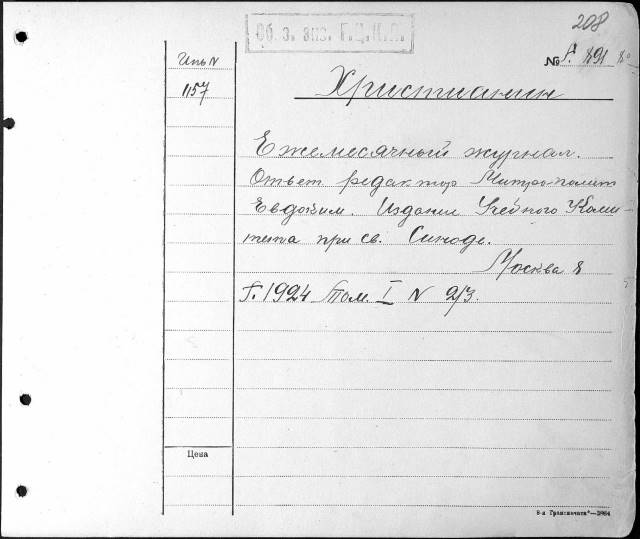 208
Об. з. экз. Г.Ц.К.П.
Инв N
№ F. 891
1157
Христианин
Ежемесячный журнал.
Ответ. редактор Митрополит
Евдоким. Издание Учебного Коми-
тета при св. Синоде.
Москва 8
F. 1924 Том. I N 2/3.
Цена
8-я „Транспечати“—3864